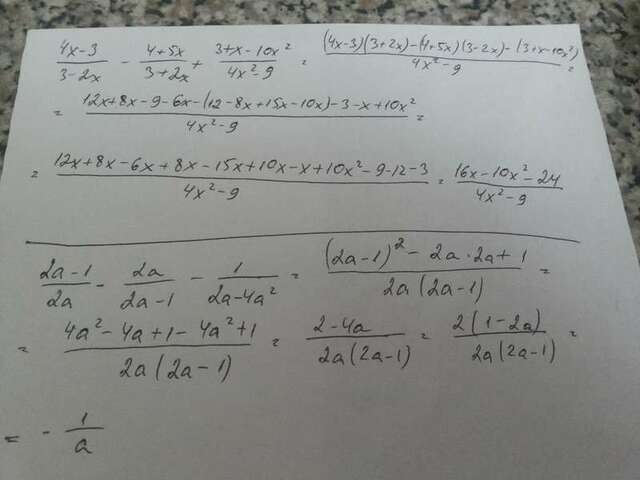 (4x-3)/(3-2x) - (4+5x)/(3+2x) + (3+x-10x²)/(4x²-9) = ((4x-3)(3+2x)-(4+5x)(3-2x)-(3+x-10x²))/(4x²-9) =
= (12x+8x-9-6x-(12-8x+15x-10x)-3-x+10x²)/(4x²-9) =
= (12x+8x-6x+8x-15x+10x-x+10x²-9-12-3)/(4x²-9) = (16x-10x²-24)/(4x²-9)
(2a-1)/(2a) - (2a)/(2a-1) - 1/(2a-4a²) = ((2a-1)²-2a·2a+1)/(2a(2a-1)) =
= (4a²-4a+1-4a²+1)/(2a(2a-1)) = (2-4a)/(2a(2a-1)) = (2(1-2a))/(2a(2a-1)) =
= - 1/a